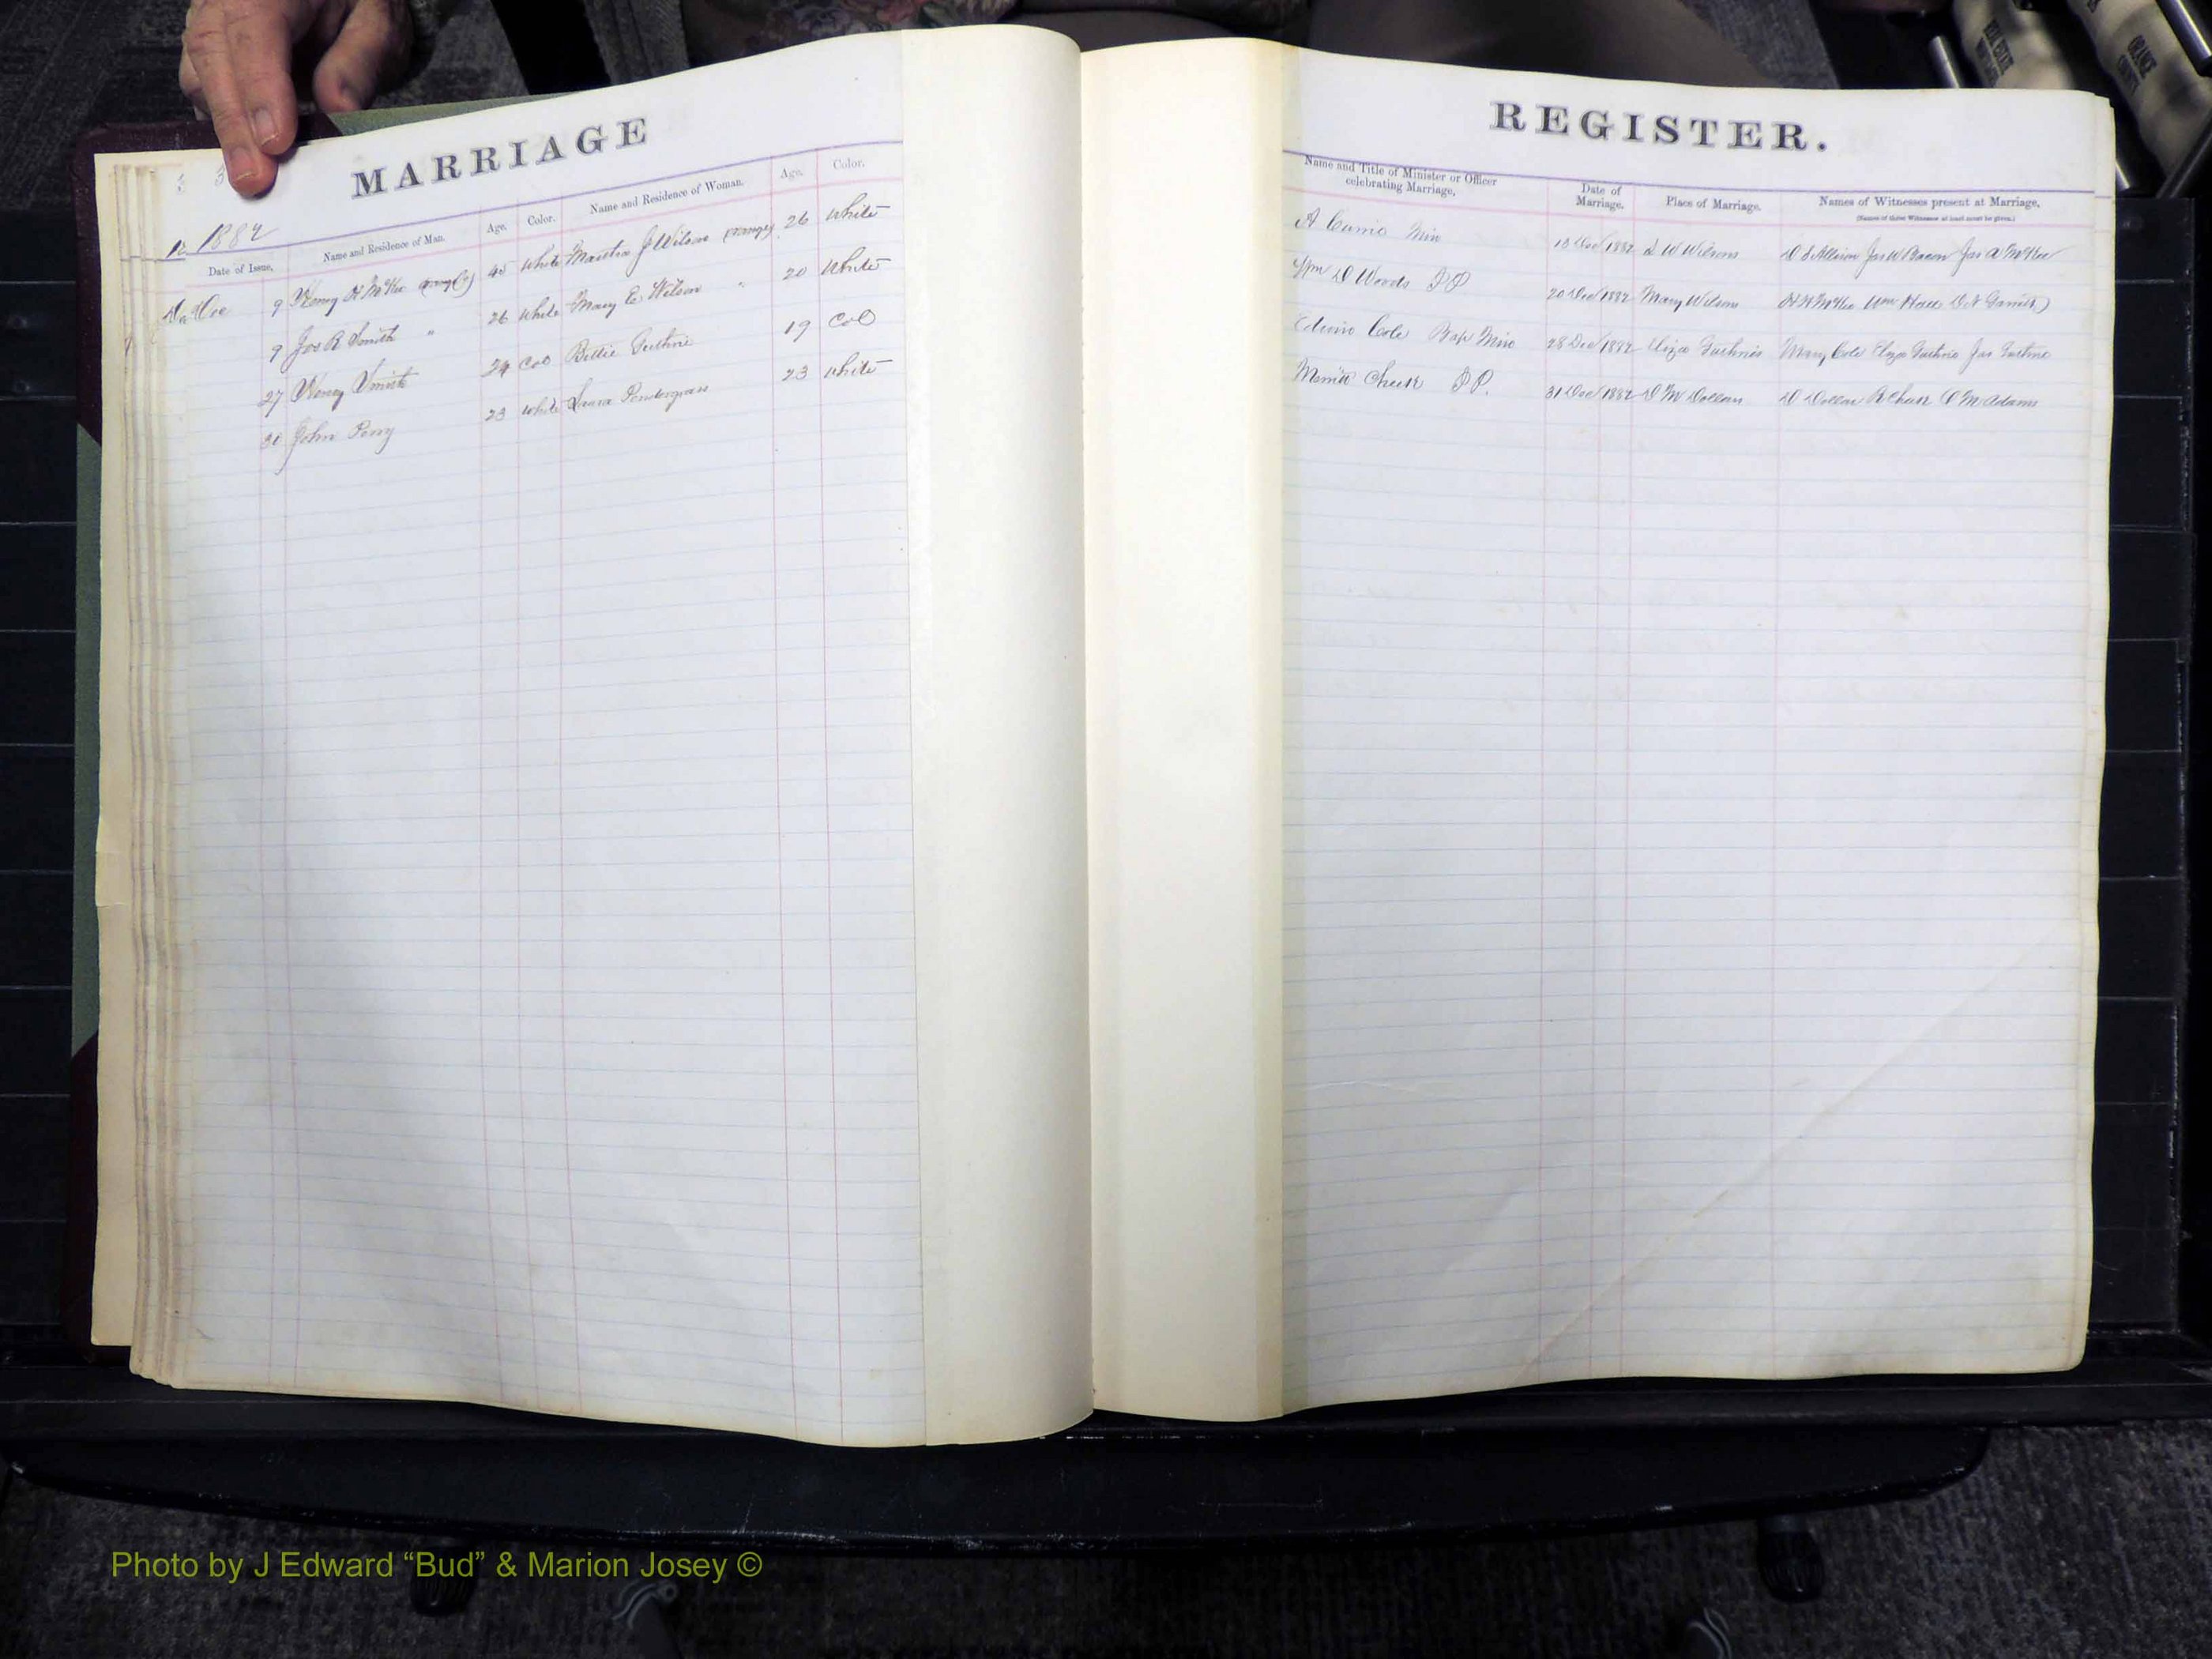 MARRIAGE
1882
Date of Issue.
Name and Residence of Man.
Age.
Color.
Name and Residence of Woman.
Age.
Color.
Dec 9 Henry H McKee 40 White Martha J Wilson 26 White
9 Jos R Smith " 26 White Mary E Wilson " 20 White
27 Henry 24 Col Bettie Guthrie 19 Col
30 John Perry 23 White Laura Pendergrass 23 White
REGISTER.
Name and Title of Minister or Officer
celebrating Marriage.
Date of
Marriage.
Place of Marriage.
Names of Witnesses present at Marriage.
(Names of three Witnesses at least must be given.)
A Currie Min 13 Dec 1882 Wilsons D S Allison Jas W Bacon Jas A McKee
Wm D Woods JP 20 Dec 1882 Mary Wilsons H H McKee Wm Hall
Edwin Cole Bap Min 28 Dec 1882 Eliza Guthries Mary Cole Eliza Guthrie Jas Guthrie
Merritt Cheek JP. 31 Dec 1882 D M Dollars D Dollar Adams
REAL ESTATE
ORANGE
COUNTY
Photo by J Edward “Bud” & Marion Josey ©